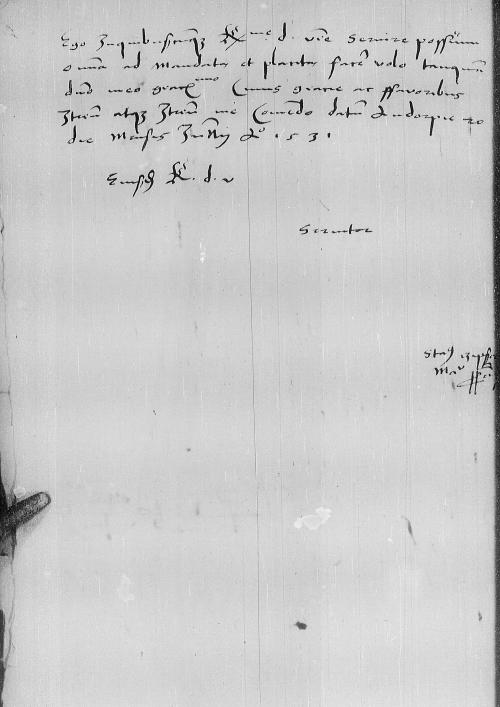 Ego Inquibuscunqz R me d. vre servire possum
omia ad mandata et placita facere volo tanquam
dno meo gratmo Cuius gratie ac ffavoribus
Iteru atqz Iteru me Comendo datu Andorpie 20
die Mensis Junij Ao 1531
Eiusd R. d. v
Servitor